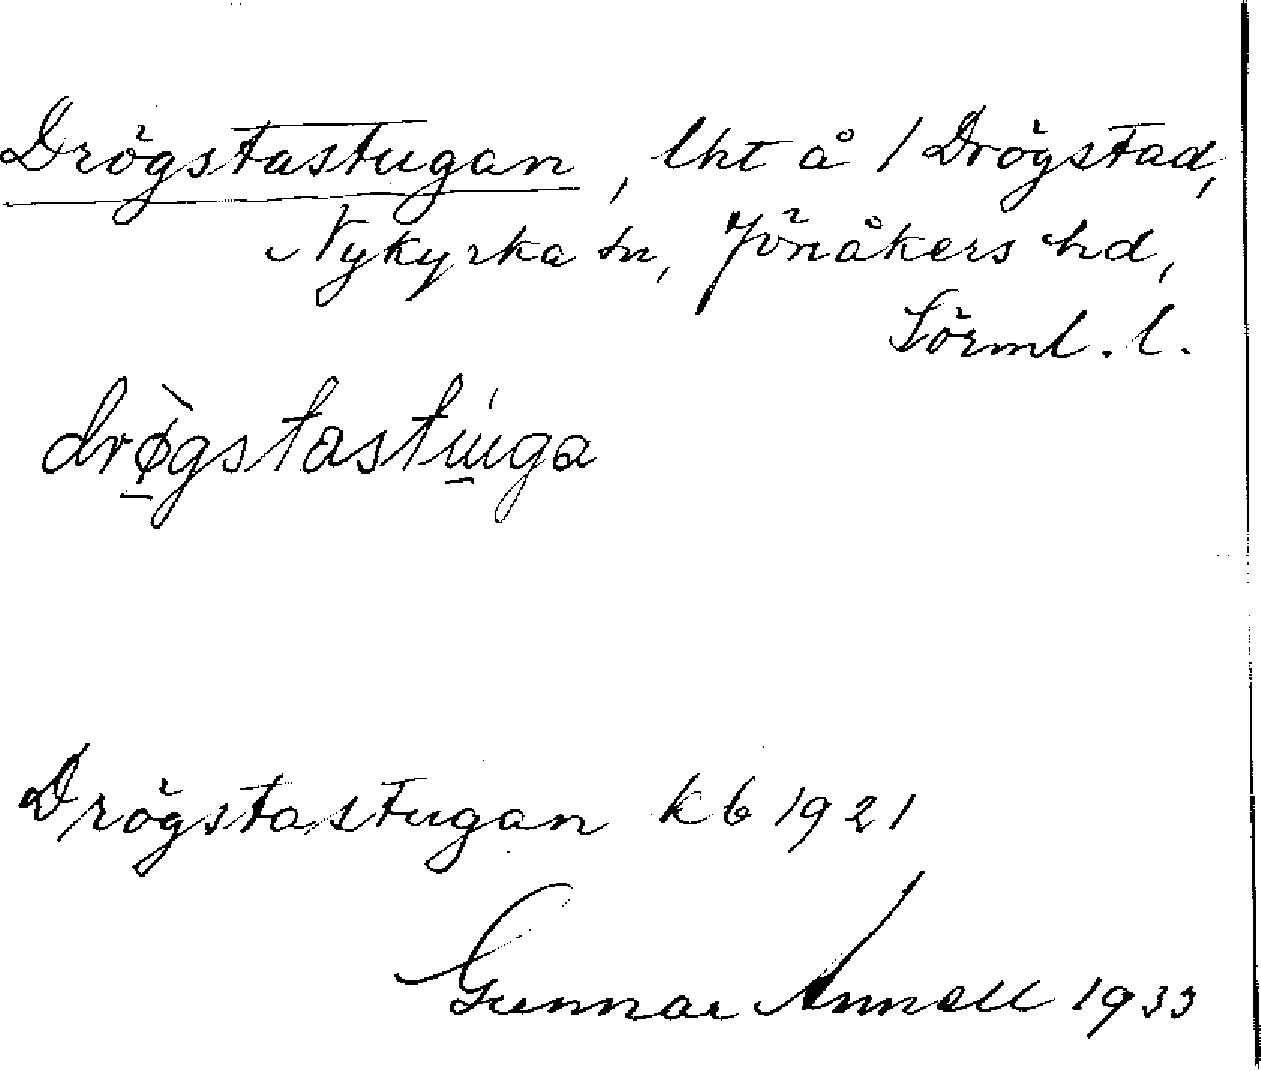 Drögstastugan, lht å 1 Drögstad,
Nykyrka sn, Jönåkers hd,
Sörml. l.
drø̀gstastúga
Drögstastugan kb 1921
Gunnar Annell 1933